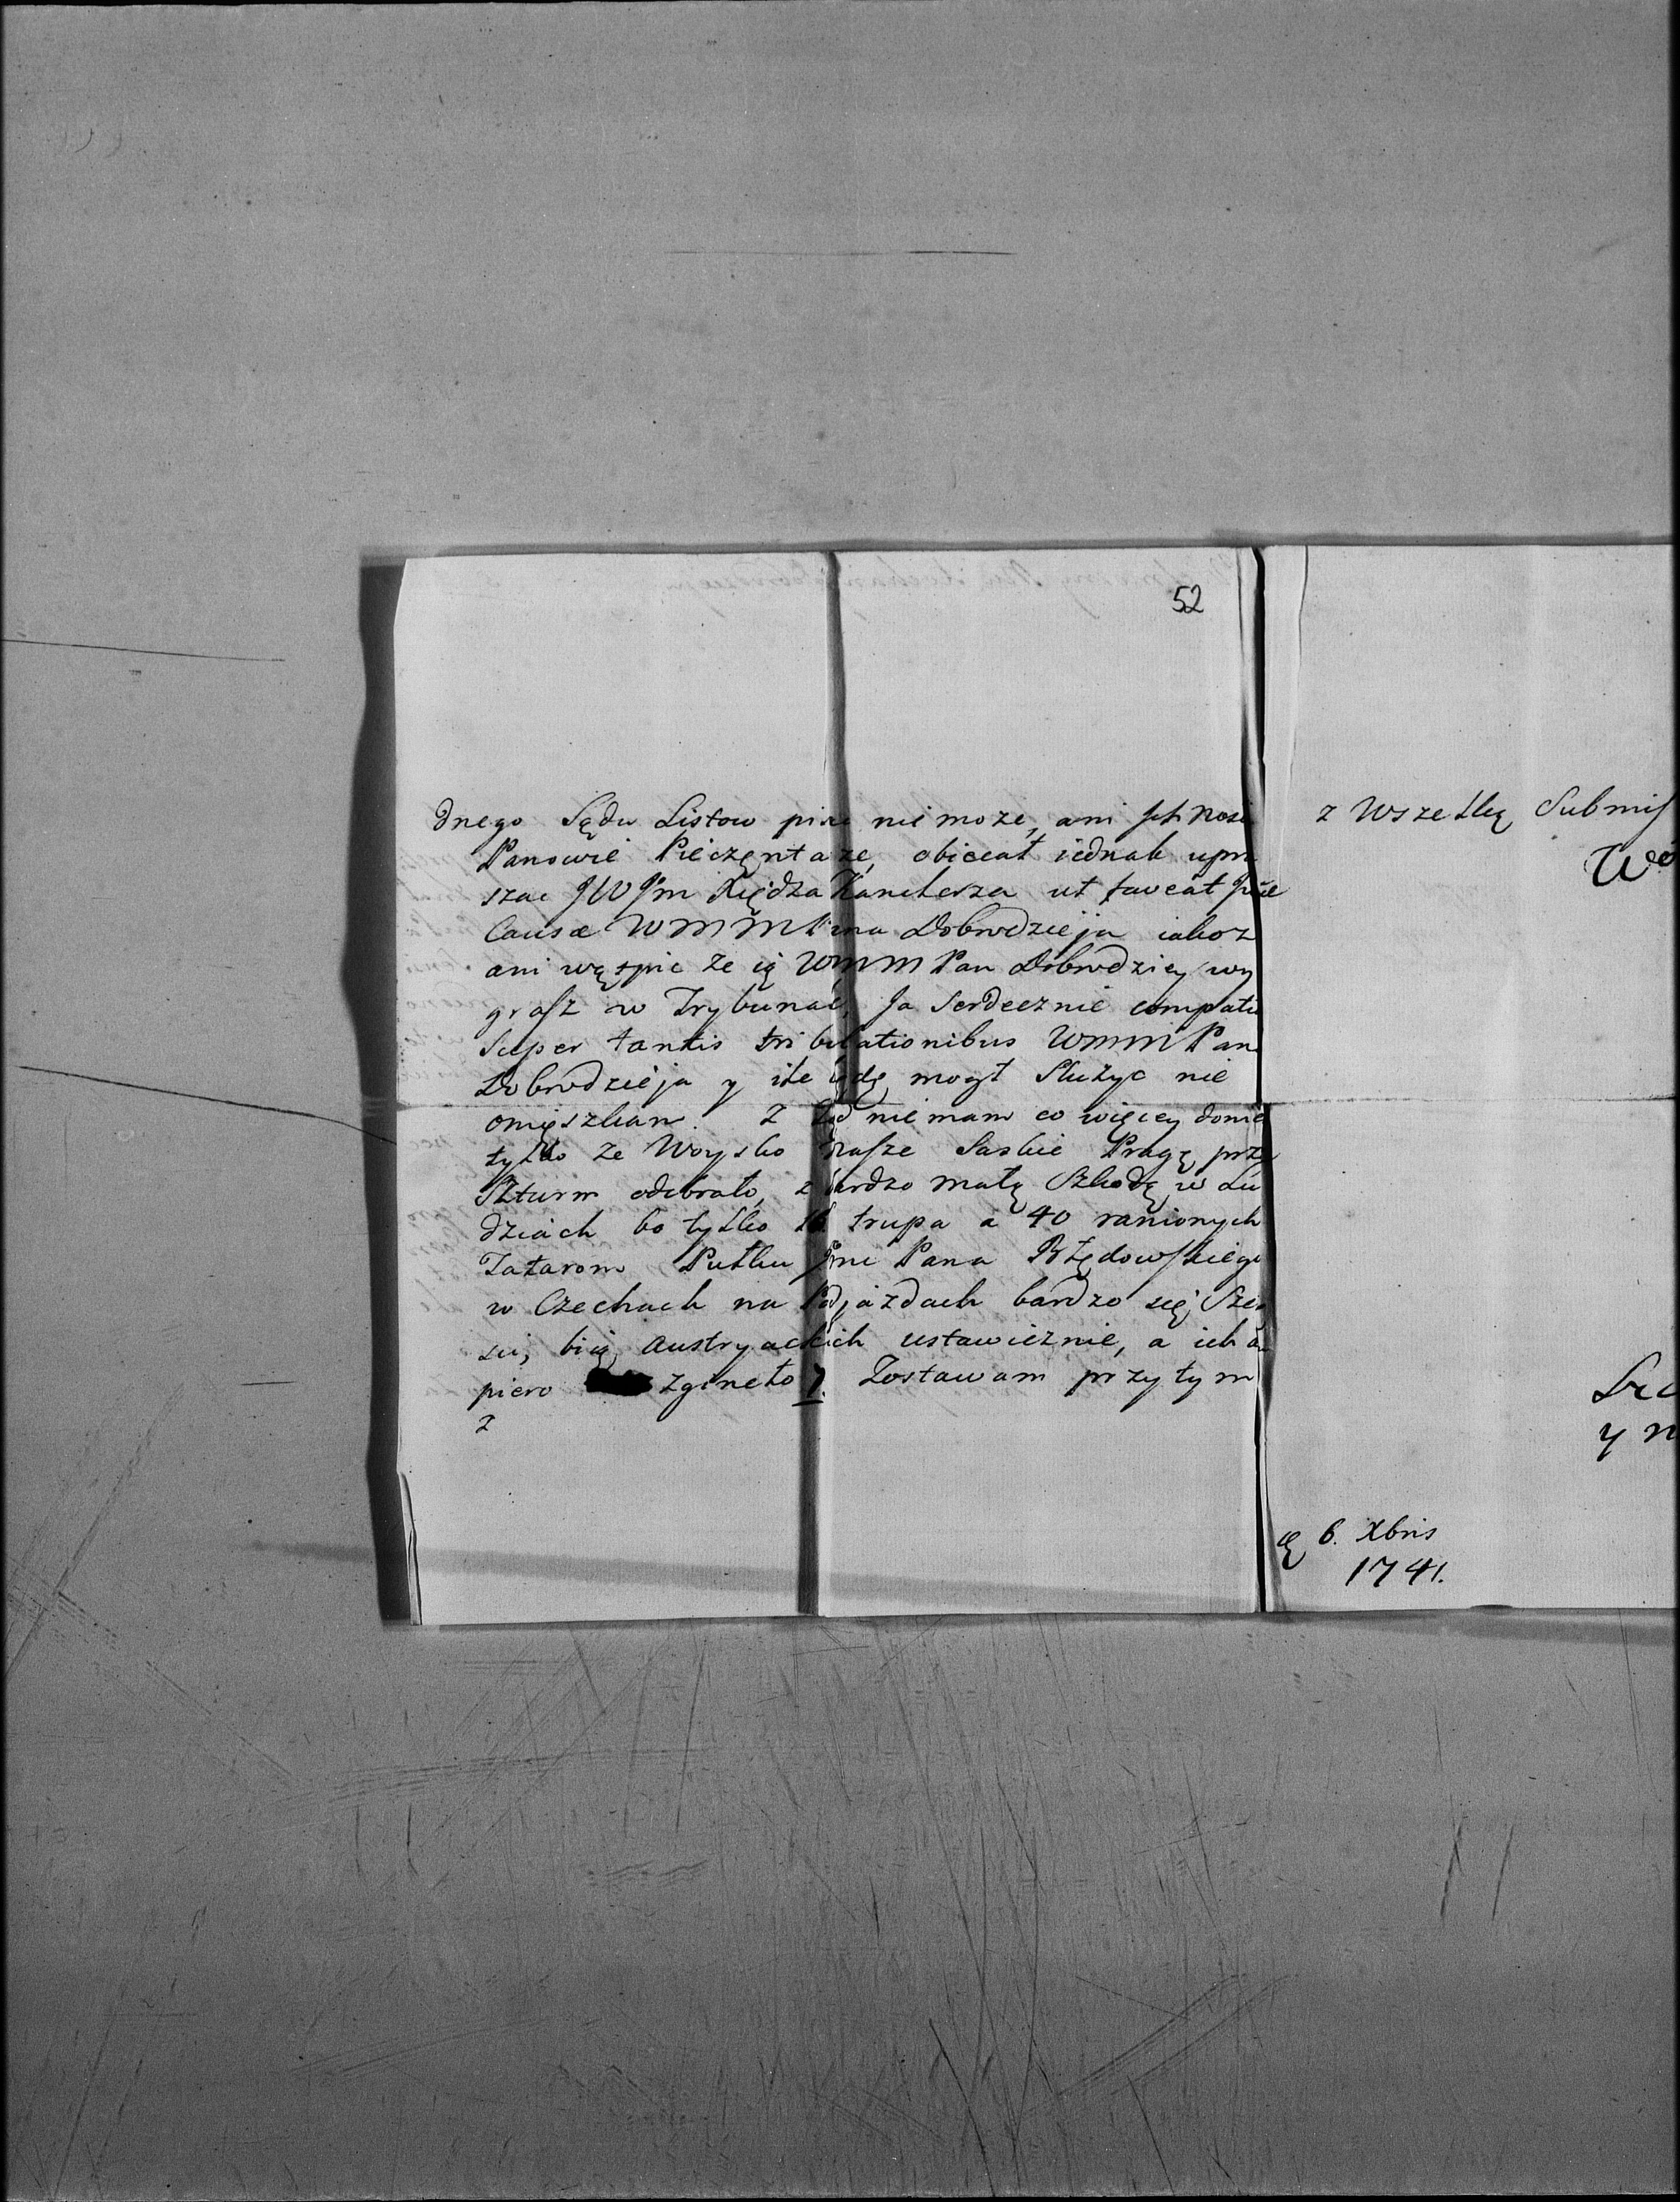 52
dnego Sędu Listow pisać nie moze, ani Ich Mość
Panowie Pieczęntarze, obiecał iednak upra
szac JWJm Xiędza Kanclerza ut faveat
Causæ WMMPana Dobrodzieja iakoz
ani wątpie ze ią WMMPan Dobrodziey wy
grasz w Trybunale, Ja Serdecznie compatior
Super tantis tribulationibus WMMPana
Dobrodzieja y ile będę mogł Służyc nie
omięszkam. Z tąd nie mam co więcey donie
tylko ze Woysko Nasze Saskie Pragę przez
Szturm odebrało, z bardzo małą Szkodą w Lu
dziach bo tylko trupa a 40 ranionych
Tatarom Pułku Jmc Pana Błędowskiego
w Czechach na Podjazdach bardzo się Szczę
sci, biią Austryackich ustawicznie, a ich
piero zgineło 7. Zostawam przytym
z
z Wszelką Submis
We
y n
6. Xbris
1741.